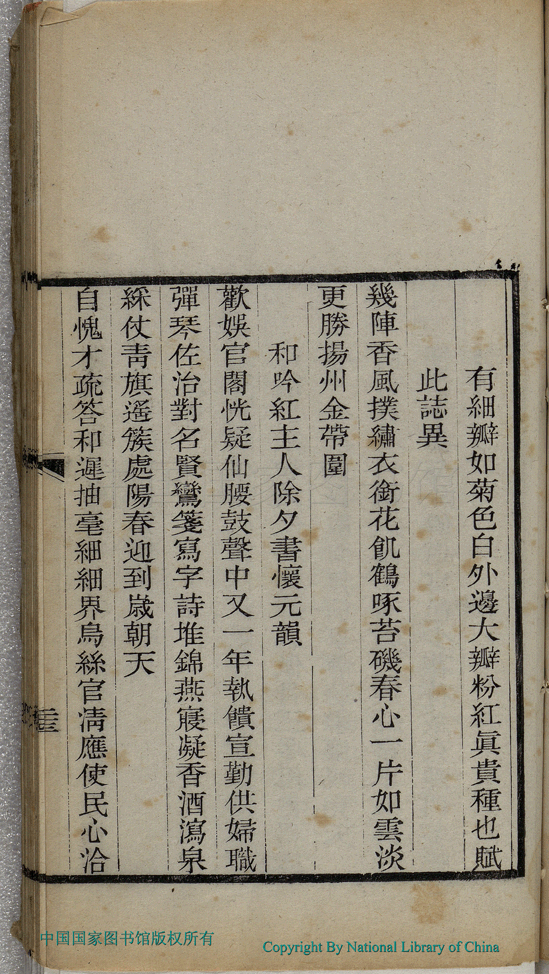 有細瓣如菊色白外邊大瓣粉紅眞貴種也賦
此誌異
幾陣香風撲繡衣銜花飢鶴啄苔磯春心一片如雲淡
更勝揚州金帶圍
和吟紅主人除夕書懷元韻
歡娛官閣恍疑仙腰鼓聲中又一年執饋宣勤供婦職
彈琴佐治對名賢鸞箋寫字詩堆錦燕寢凝香酒瀉泉
綵仗靑旗遙簇處陽春迎到歲朝天
自愧才疏答和遲抽毫細細界烏絲官淸應使民心洽
中国国家图书馆版权所有
Copyright By National Library of China